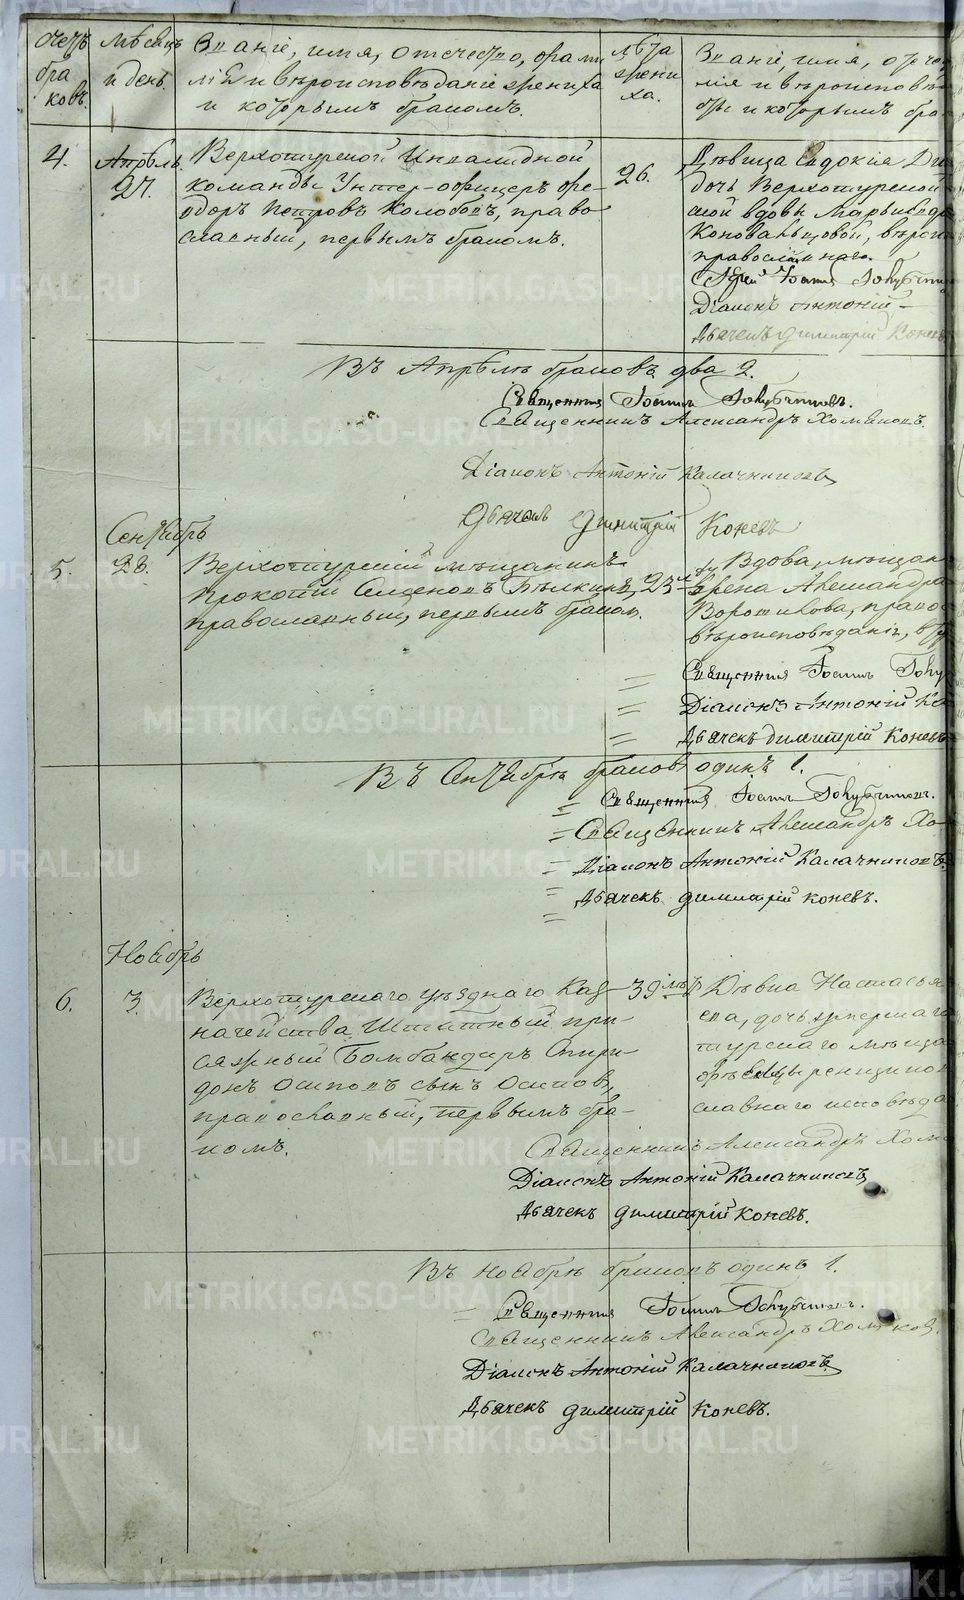 Счетъ браковъ.
Мѣсяцъ и день.
Званіе, имя, отечество, фами
лія и вѣроисповѣданіе жениха
и которымъ бракомъ.
Лѣта жени
ха.
Званіе, имя, отече
лія и вѣроисповѣ
сты и которымъ бра
4.
Апрѣль
27.
Верхотурской Инвалидной
команды Унтер-офицеръ Фе-
одоръ Петровъ Колобовъ, право
славный, первымъ бракомъ.
26.
Дѣвица Евдокія
дочь Верхотурской
ской вдовы Марьи
Коноваловой, вѣрои
православнаго.
Іерей Іоаннъ
Діаконъ Антоній
Дьячекъ Димитрій Конев
Въ Апрѣлѣ браковъ два 2.
Священникъ Іоаннъ
Священникъ Александръ Хомяковъ.
Діаконъ Антоній Калачниковъ
Дьячекъ Димитрій Коневъ
Сентябрь
5.
28.
Верхотурскій мѣщанинъ
Прокопій Семеновъ Бѣлкинъ,
православный, первымъ браком.
23
Вдова, мѣщан
Александра
Ворошилова, право
вѣроисповѣданія,
Священникъ Іоаннъ
Діаконъ Антоній
Дьячекъ Димитрій Коневъ
Въ Сентябрѣ браковъ одинъ 1.
Священникъ Іоаннъ
Священникъ Александръ Хо
Діаконъ Антоній Калачниковъ.
Дьячекъ Димитрій Коневъ.
Ноябрь
6.
3.
Верхотурскаго уѣзднаго Каз
начейства Штатный при-
сяжный Бомбандиръ Спири-
донъ Осиповъ сынъ Осиповъ,
православный, первымъ бра-
комъ.
39
Дѣвка Настасья
ева, дочь умершаго
турскаго мѣща
славнаго исповѣда
Священникъ Александръ Хом
Діаконъ Антоній Калачниковъ
Дьячекъ Димитрій Коневъ.
Въ Ноябрѣ браковъ одинъ 1.
Священникъ Іоаннъ
Священникъ Александръ Хомяков.
Діаконъ Антоній Калачниковъ
Дьячекъ Димитрій Коневъ.
METRIKI.GASO-URAL.RU